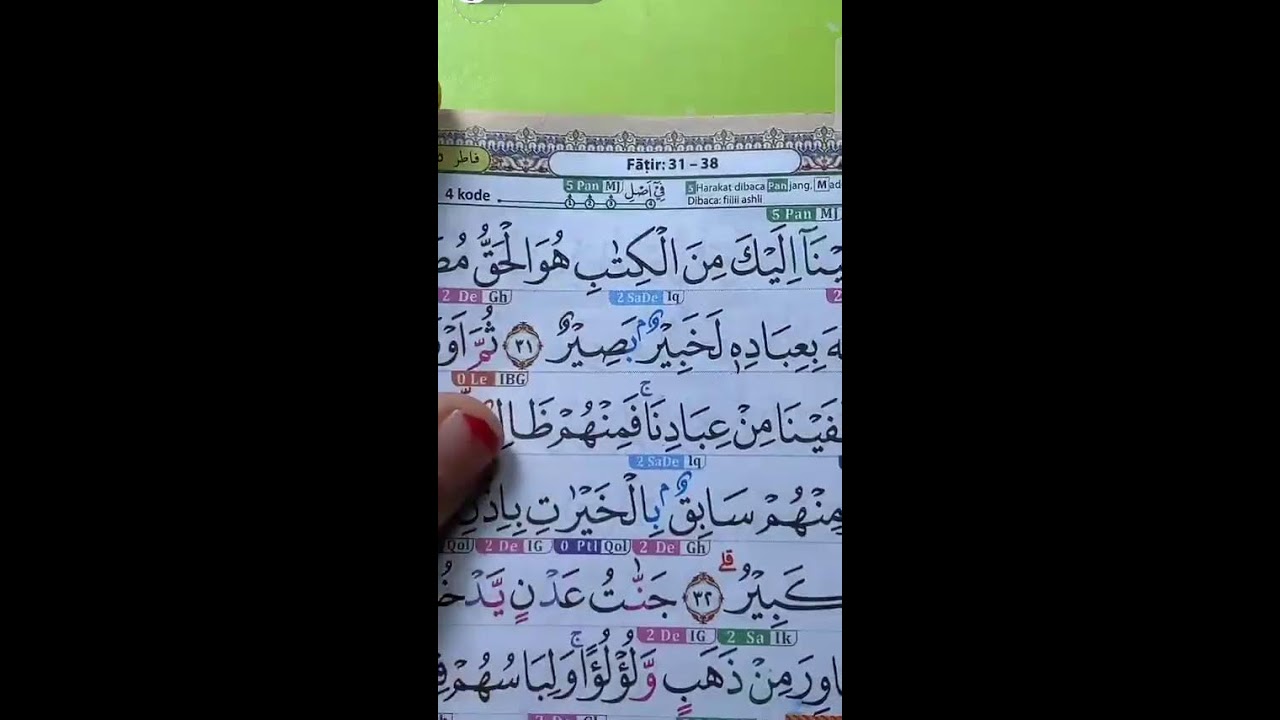 فاطر
Fāṭir: 31 – 38
4 kode
5 Pan MJ
فِيْٓ اَصْلِ
5 Harakat dibaca Panjang, Mad
Dibaca: fiiiii ashli
5 Pan MJ
اِلَيْكَ مِنَ الْكِتٰبِ هُوَ الْحَقُّ
2 De Gh
2 SaDe Iq
بِعِبَادِهٖ لَخَبِيْرٌۢ بَصِيْرٌ ٣١ ثُمَّ
0 Le IBG
مِنْ عِبَادِنَاۚ فَمِنْهُمْ
2 SaDe Iq
سَابِقٌۢ بِالْخَيْرٰتِ
Qol 2 De IG 0 Ptl Qol 2 De Gh
٣٢ جَنّٰتُ عَدْنٍ
2 De IG 2 Sa Ik
مِنْ ذَهَبٍ وَّلُؤْلُؤًاۚ وَلِبَاسُهُمْ
2 De Gh